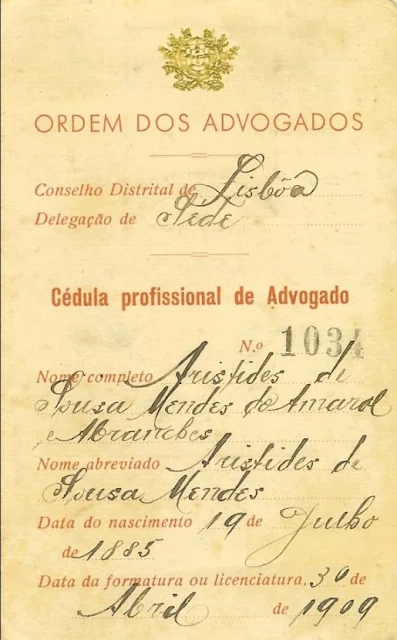 ORDEM DOS ADVOGADOS
Conselho Distrital de Lisbôa
Delegação de Sede
Cédula profissional de Advogado
N.º 1034
Nome completo Aristides de
Sousa Mendes do Amaral
e Abranches
Nome abreviado Aristides de
Sousa Mendes
Data do nascimento 19 de Julho
de 1885
Data da formatura ou licenciatura. 30 de
Abril de 1909